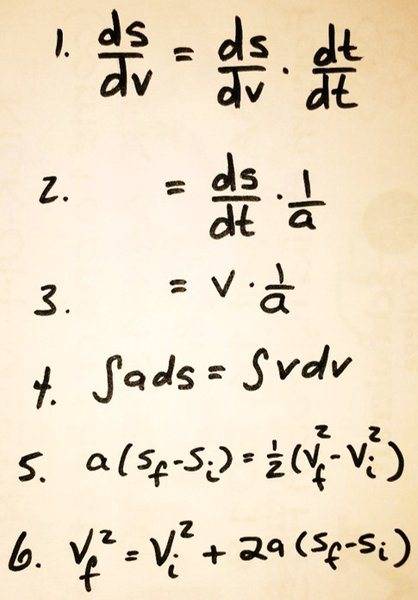 1. ds/dv = ds/dv · dt/dt
2. = ds/dt · 1/a
3. = v · 1/a
4. ∫ads = ∫vdv
5. a(s_f-s_i) = 1/2(v_f^2-v_i^2)
6. v_f^2 = v_i^2 + 2a(s_f-s_i)